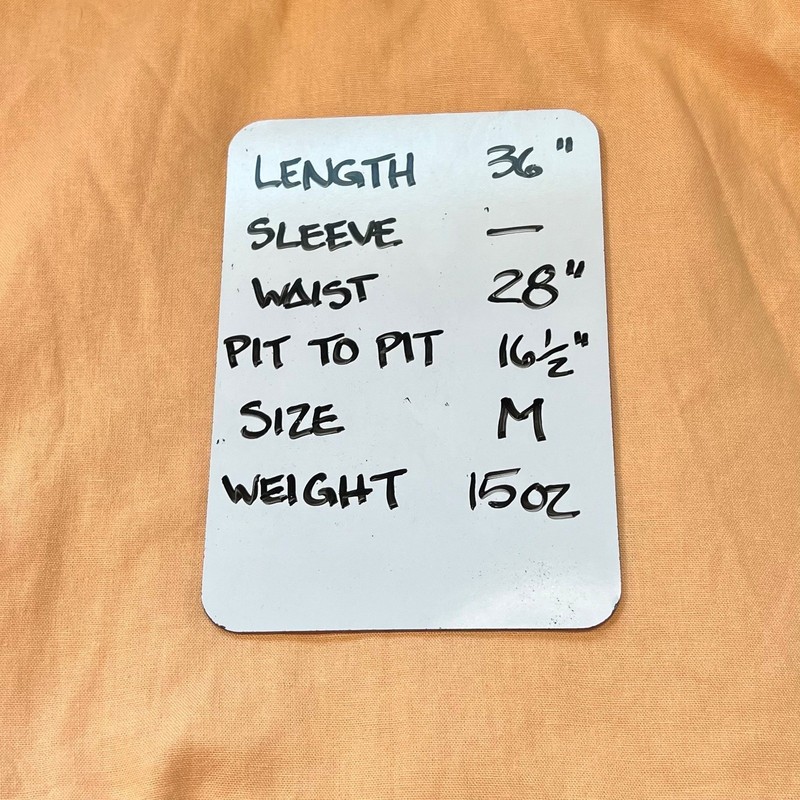 LENGTH 36"
SLEEVE —
WAIST 28"
PIT TO PIT 16½"
SIZE M
WEIGHT 15oz